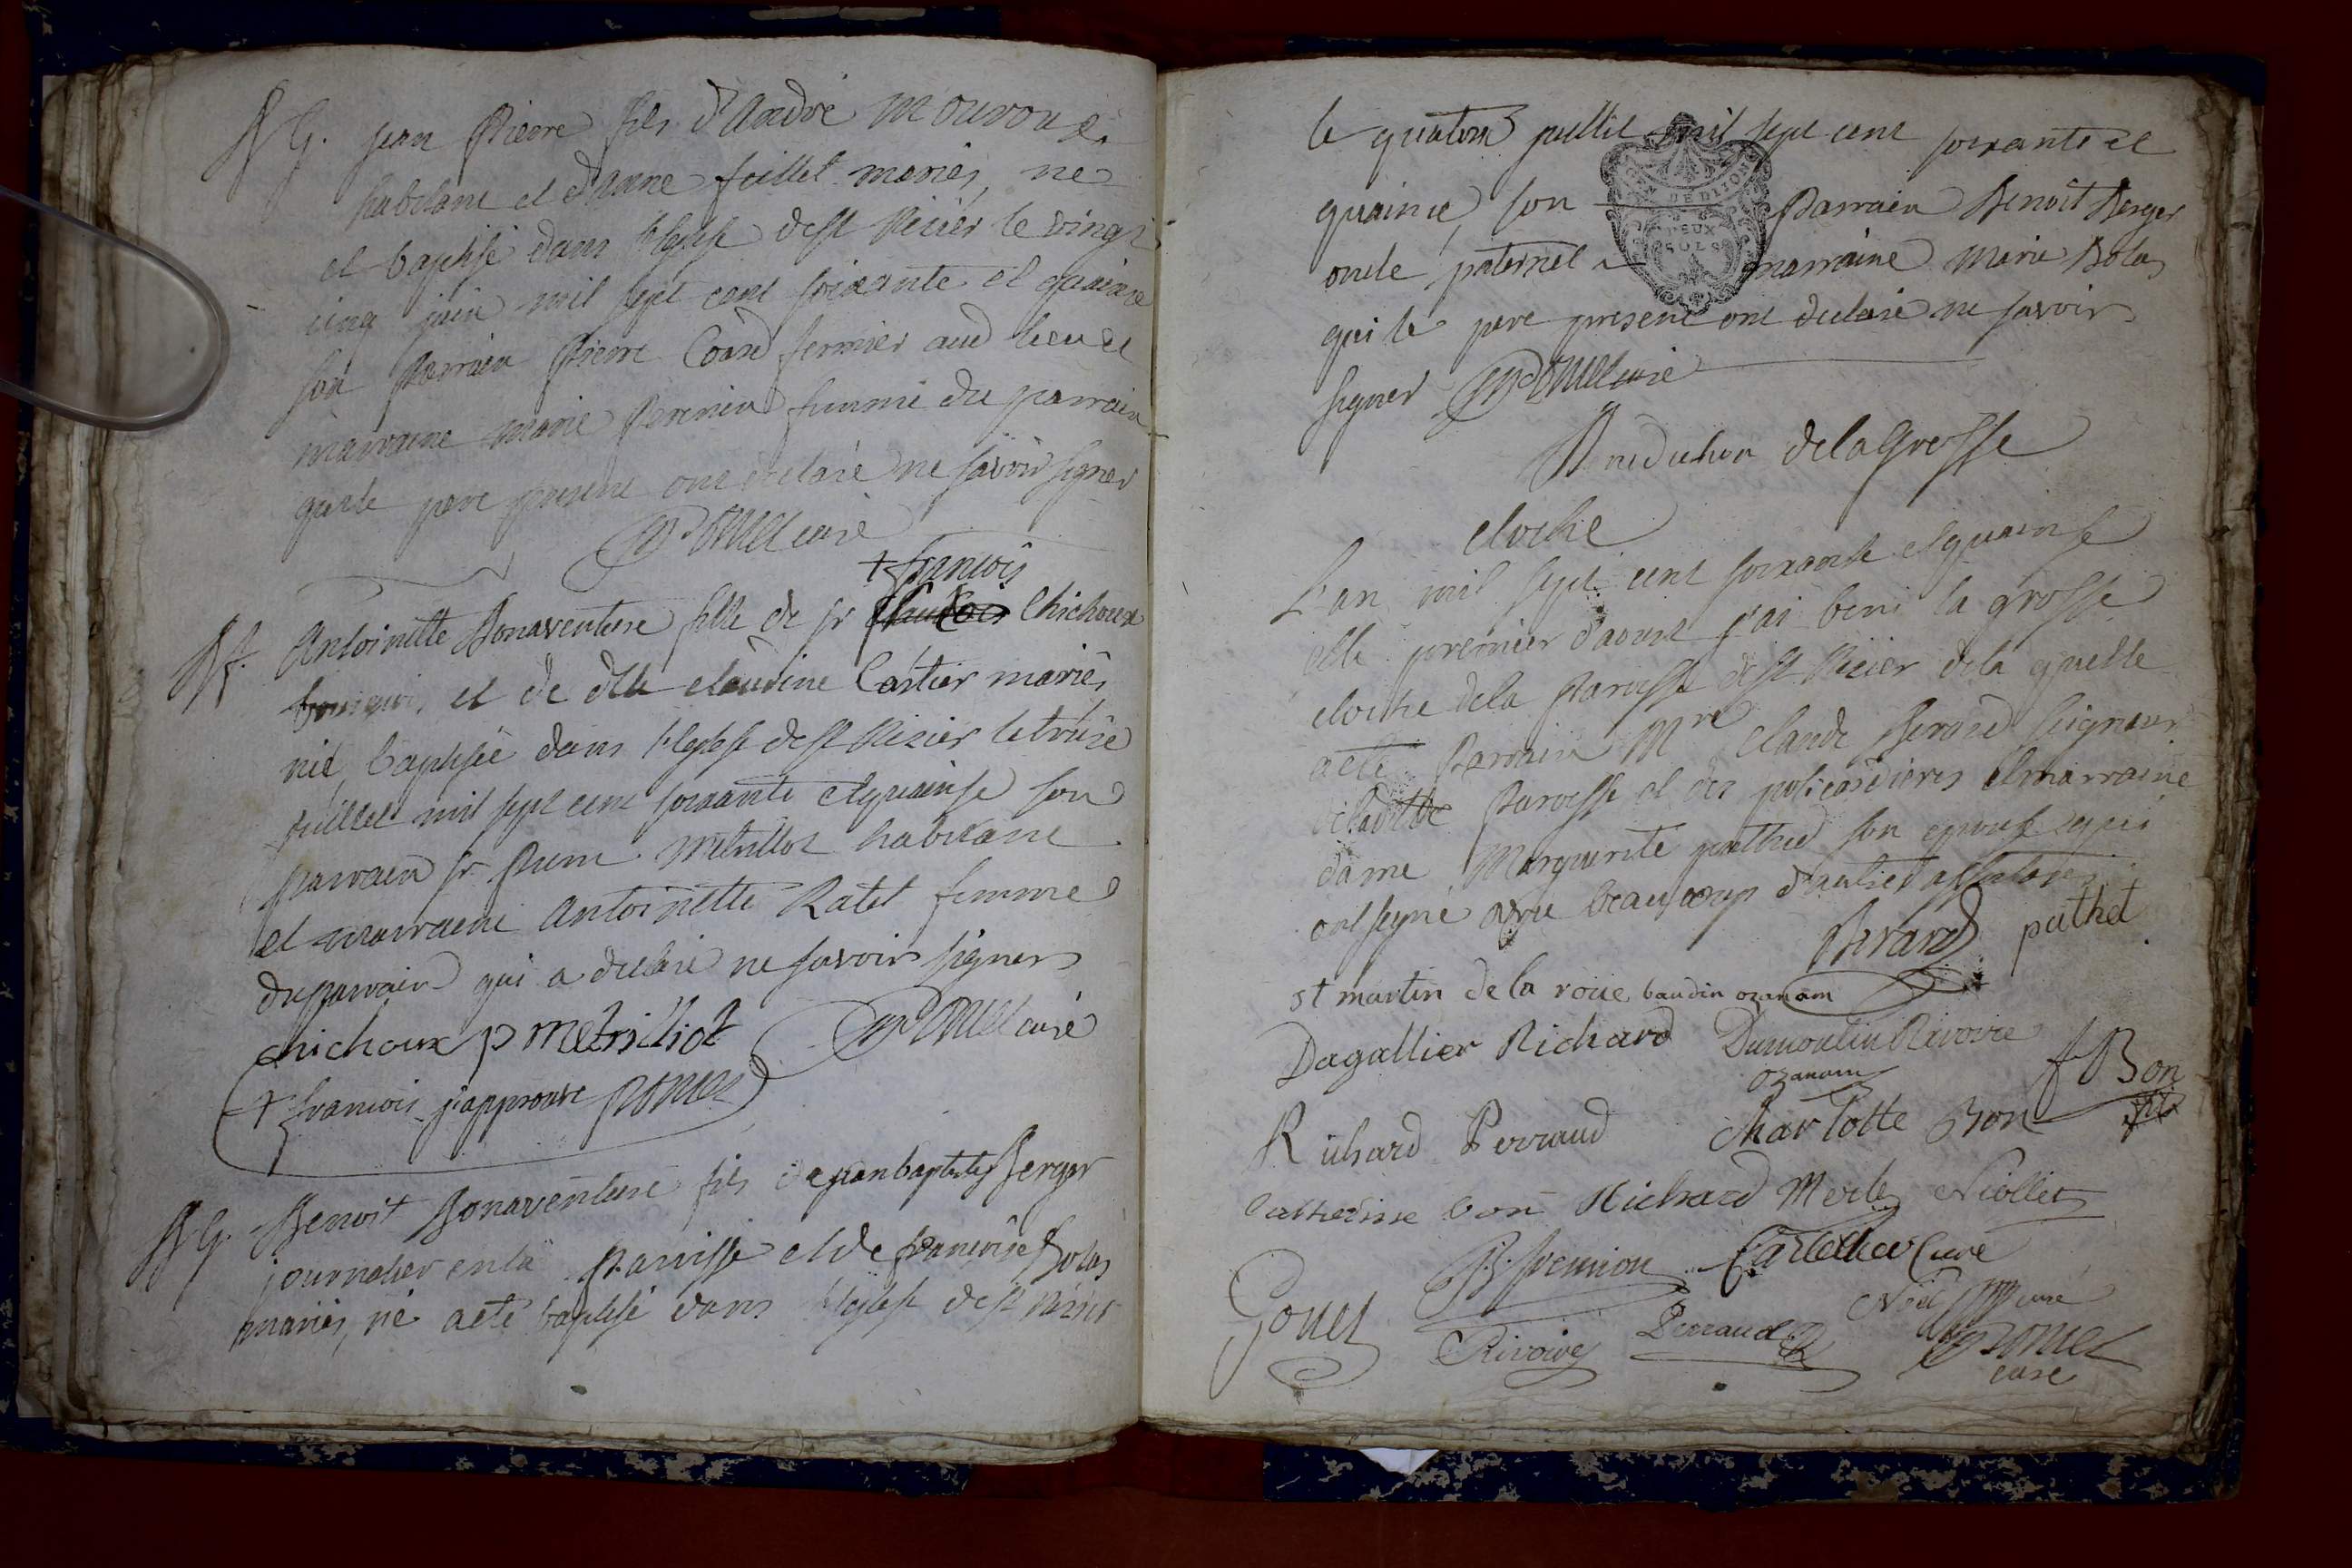 N G. jean Pierre fils d'André Mouroud
habitant et d'Anne feillet mariés, né
et baptisé dans l'eglise de st Nizier le vingt
cinq juin mil sept cent soixante et quainze
son Parrain Pierre Coard fermier aud lieu et
marraine Marie Perenin femme du parrain
qui le pere present ont declaré ne savoir signer
curé
+ francois
N f. Antoinette Bonaventure fille de sr Chichoux
bourgeois et de dlle claudine Cartier mariés
née, baptisée dans l'eglise de st Nizier le treise
juillet mil sept cent soixante et quainse son
parrain sr Pierre Metrilliot habitant
et marraine Antoinette Ratel femme
du parrain qui a declaré ne savoir signer
chichoux p metrilliot curé
+ francois j'approuve
N G. Benoit Bonaventure fils de jean baptiste Berger
journalier en la Parroisse et de francoise Bolas
mariés, né a eté baptisé dans l'eglise de st Nizier
le quatorze juillet mil sept cent soixante et
quainze, son Parrain Benoit Berger
oncle paternel marraine Marie Bolas
qui le pere present ont declaré ne savoir
signer curé
GEN DE DIJON
DEUX
SOLS
Benediction de la Grosse
cloche
L'an mil sept cent soixante et quainse
et le premier d'aoust j'ai beni la grosse
cloche de la Paroisse de st Nizier de la quelle
a eté Parrain Mre Claude Berard seigneur
de la ditte Paroisse et des policardieres et marraine
dame Marguerite puthod son epouse qui
ont signé avec beaucoup d'autres assistants
Berard puthet
st martin de la roüe baudin ozanam
Dagallier Richard Dumoulin Rivoire
ozanam f Bon
Richard Perraud Charlotte Bon
Catherine bon Richard Merle Niollet
Curé
Gouet Noel curé
Rivoire Perraud
curé